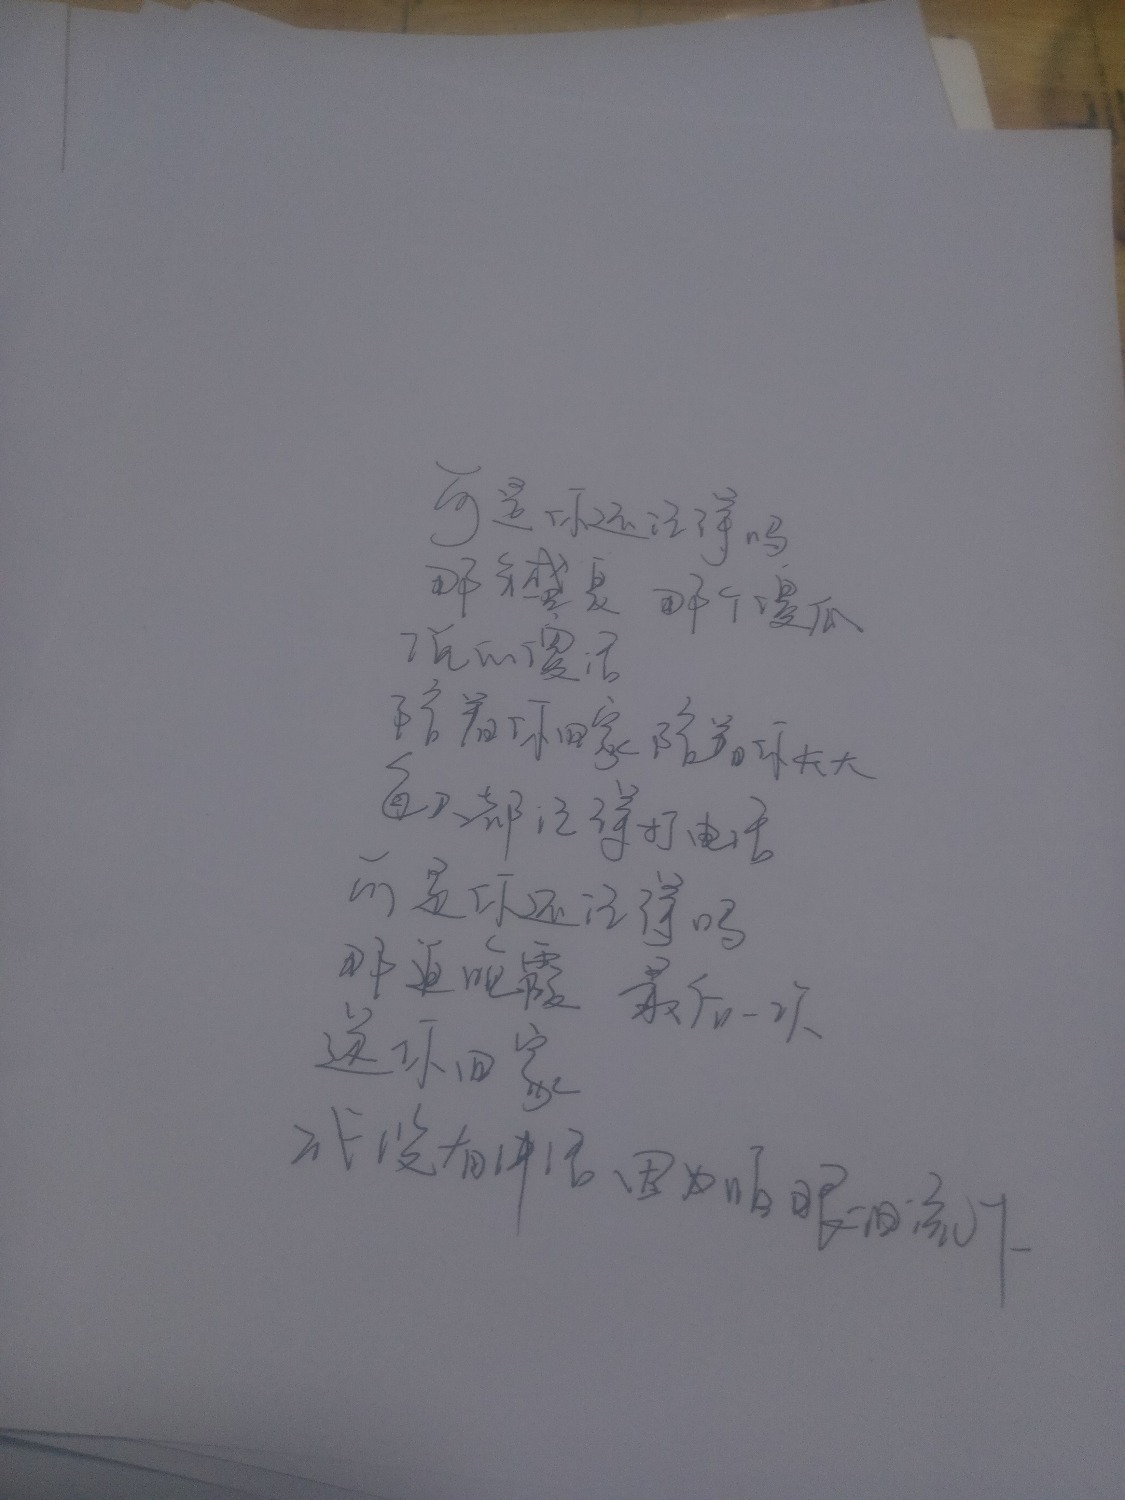 可是你还记得吗
那年盛夏 那个傻瓜
说的傻话
陪着你回家 陪着你长大
每天都记得打电话
可是你还记得吗
那道晚霞 最后一次
送你回家
我没有讲话 因为怕眼泪流下